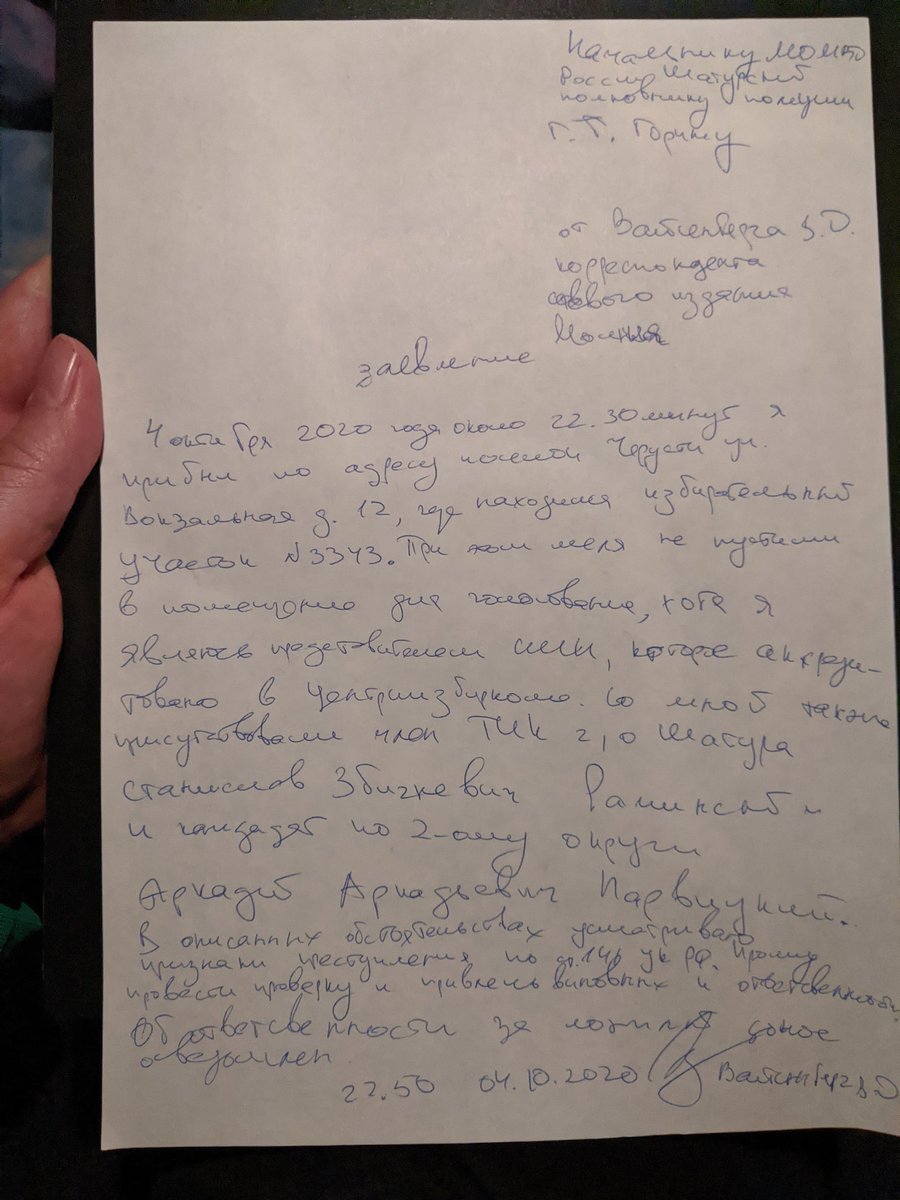 Начальнику МОМВД
России Шатурский
полковнику полиции
Г. Т.
от Вайсенберга В.Д.
корреспондента
сетевого издания
заявление
4 октября 2020 года около 22.30 минут я
прибыл по адресу поселок Черусти ул.
Вокзальная д. 12, где находился избирательный
участок №3343. При этом меня не пустили
в помещение для голосования, хотя я
являюсь представителем СМИ, которое аккреди-
товано в Центризбиркоме. Со мной также
присутствовали член ТИК г.о Шатура
Станислав Збигневич
и кандидат по 2-ому округу
Аркадий Аркадьевич
В описанных обстоятельствах усматриваю
признаки преступления по ст. УК РФ. Прошу
провести проверку и привлечь виновных к ответственности.
Об ответственности за ложный донос
осведомлен
22.50 04.10.2020 В Д